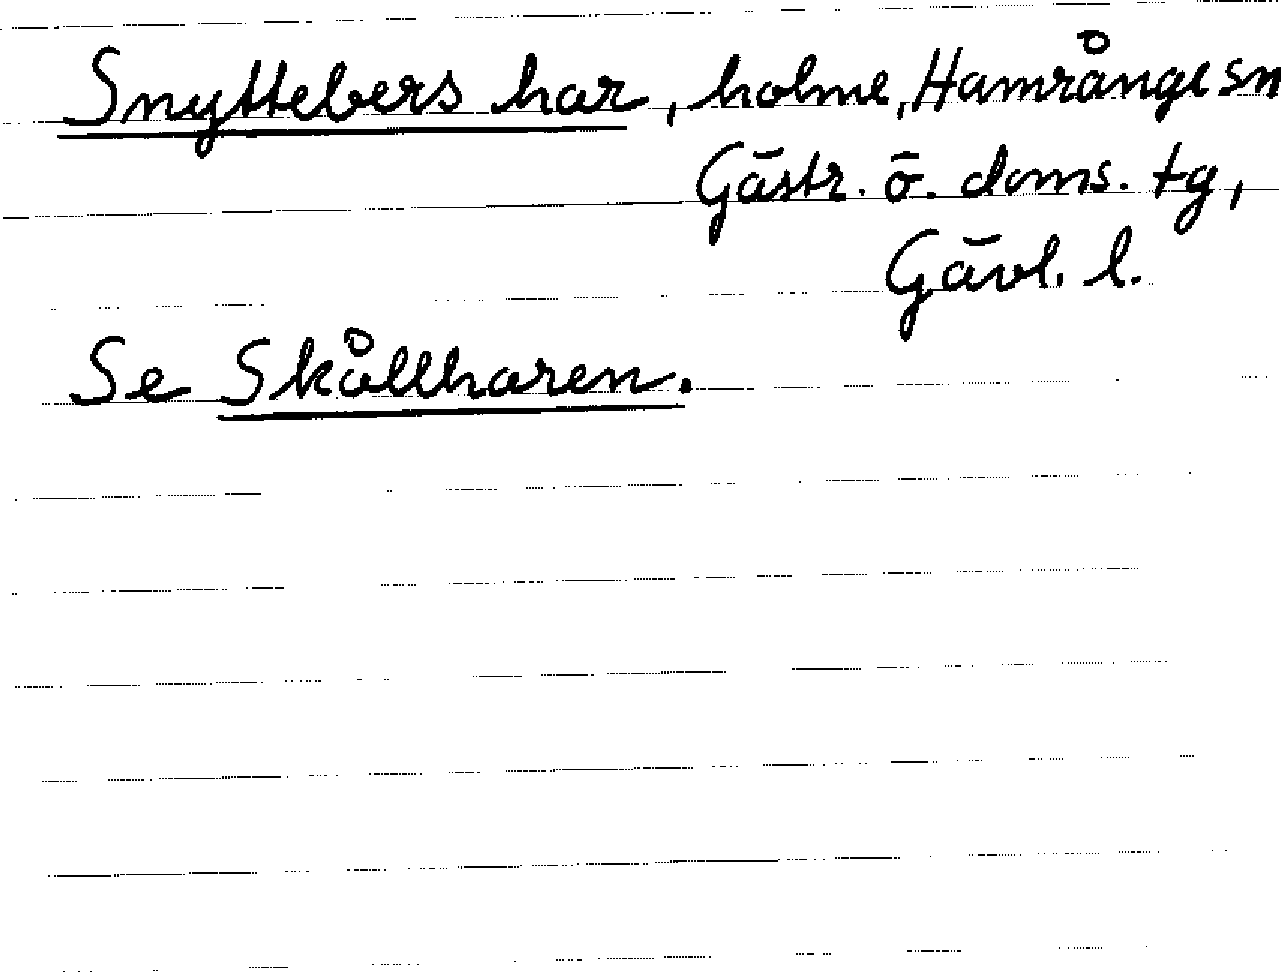 Snyttebers har, holme, Hamrånge sn
Gästr. ö. doms. tg,
Gävl. l.
Se Skållharen.